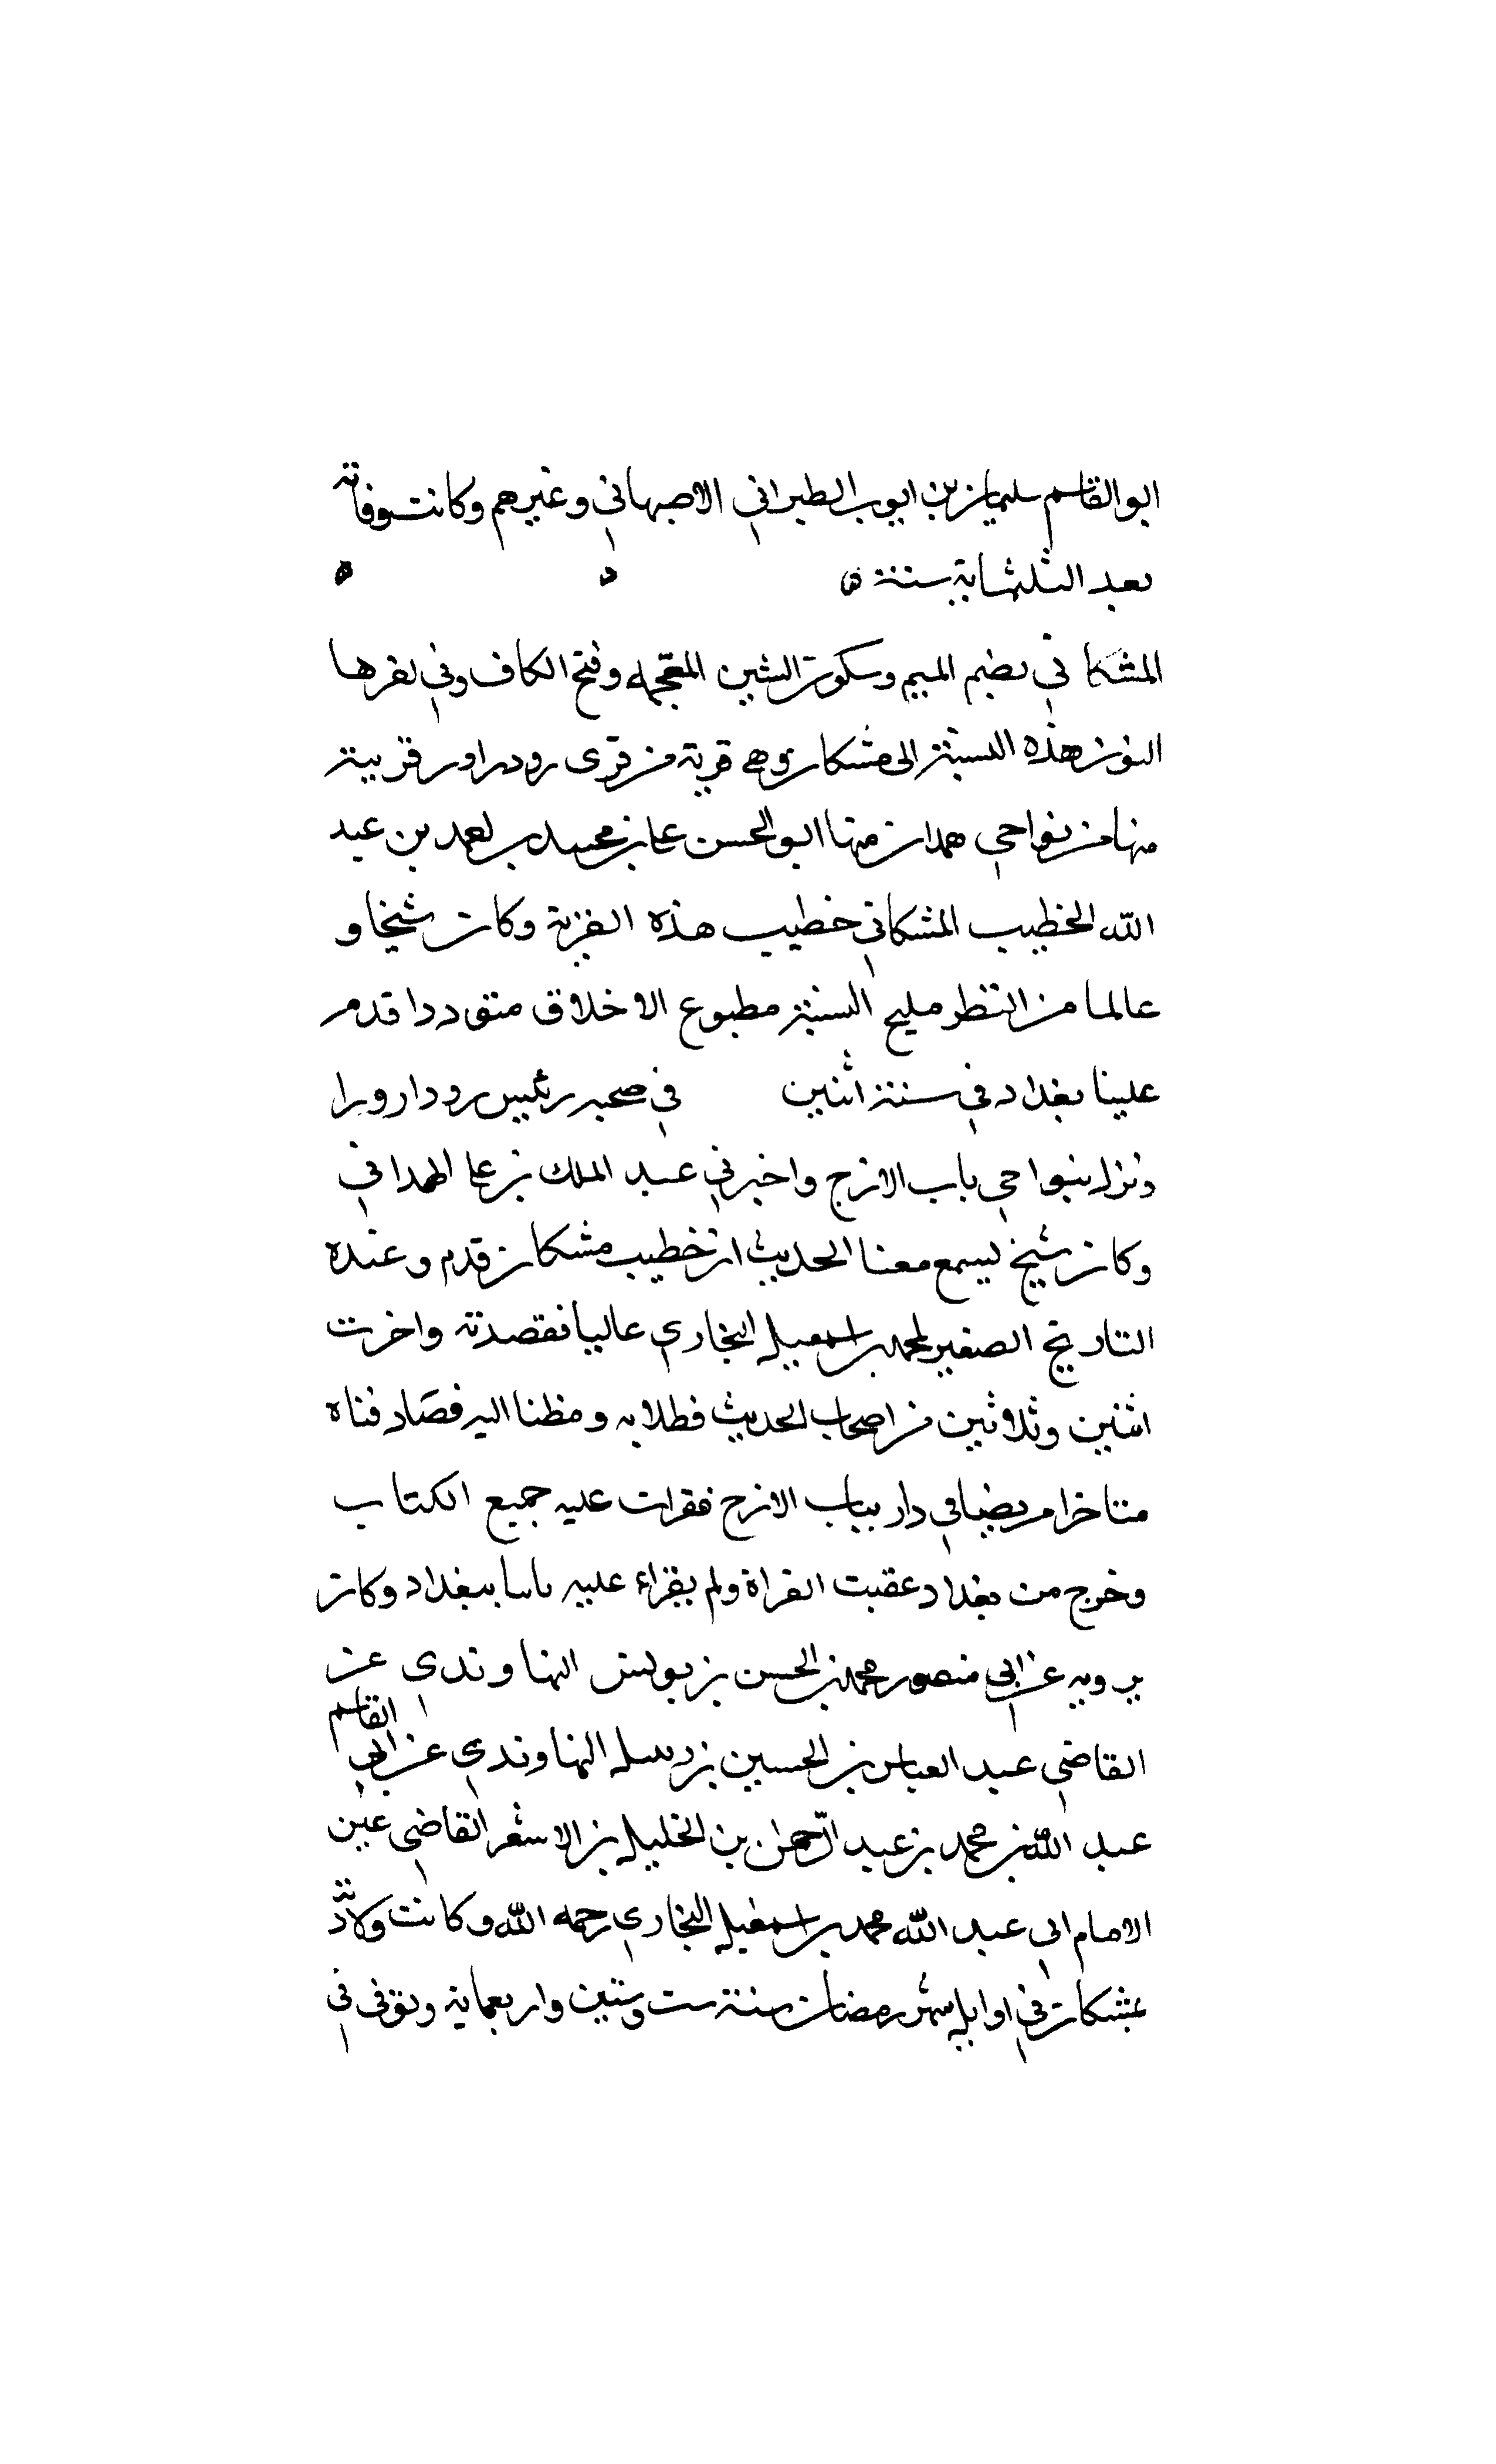 ابو القاسم سليمان بن ايوب الطبراني الاصبهاني وغيرهم وكانت وفاته
بعد الثلثماية سنة
المشكاني بضم الميم وسكون الشين المعجمه وفتح الكاف وفي اخرها
النون هذه النسبة الى مشكان وهي قرية من قرى رودراور قريبة
منها من نواحي همدان منها ابو الحسن علي بن محمد بن احمد بن عبد
الله الخطيب المشكاني خطيب هذه القرية وكان شيخا و
عالما من النظر مليح الشيبة مطبوع الاخلاق متوددا قدم
علينا بغداد في سنة اثنين في صحبه رئيس رودارورا
ونزل بنواحي باب الازج واخبرني عبد الملك بن علي الهمداني
وكان شيخ يسمع معنا الحديث ان خطيب مشكان قدم وعنده
التاريخ الصغير لمحمد بن اسمعيل البخاري عاليا فقصدته واخرت
اثنين وثلاثين من اصحاب الحديث فطلابه ومظنا اليه فصادفناه
متاخرا مريضا في دار بباب الازج فقرات عليه جميع الكتاب
وخرج من بغداد عقبت القراة ولم يقراء عليه باسا ببغداد وكان
يرويه عن ابي منصور محمد بن الحسن بن يونس النهاوندي عن
القاضي عبد العباس بن الحسين بن النهاوندي عن ابي القاسم
عبد الله بن محمد بن عبد الرحمن بن الخليل بن الاشقر القاضي عن
الامام ابي عبد الله محمد بن اسمعيل البخاري رحمه الله وكانت ولادته
بمشكان في اوايل شهر رمضان سنة ست وستين واربعماية وتوفى في